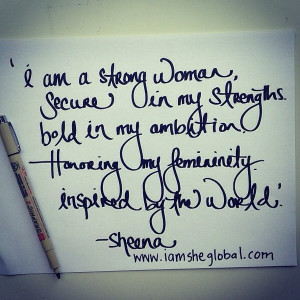 'I am a strong woman,
Secure in my Strengths.
bold in my ambition.
Honoring my femininity.
inspired by the World'.
-Sheena
www.iamsheglobal.com